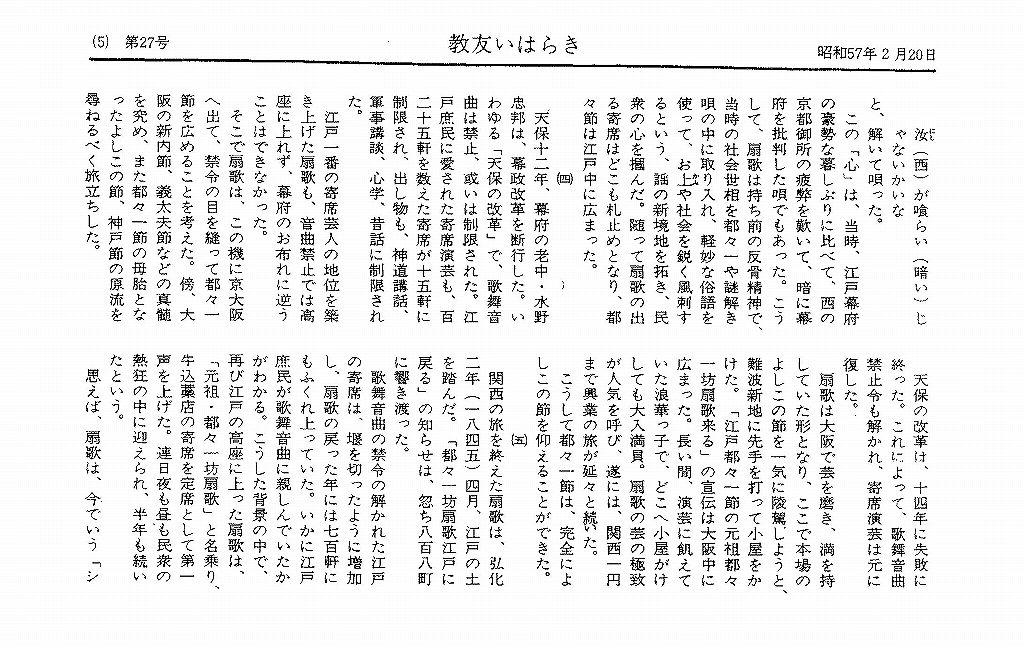 (5) 第27号
教友いはらき
昭和57年2月20日
汝（西）が喰らい（暗い）じ
ゃないかいな
と、解いて唄った。
この「心」は、当時、江戸幕府
の豪勢な暮しぶりに比べて、西の
京都御所の疲弊を歎いて、暗に幕
府を批判した唄でもあった。こう
して、扇歌は持ち前の反骨精神で、
当時の社会世相を都々一や謎解き
唄の中に取り入れ、軽妙な俗語を
使って、お上や社会を鋭く風刺す
るという、謡の新境地を拓き、民
衆の心を摑んだ。随って扇歌の出
る寄席はどこも札止めとなり、都
々節は江戸中に広まった。
㈣
天保十二年、幕府の老中・水野
忠邦は、幕政改革を断行した。い
わゆる「天保の改革」で、歌舞音
曲は禁止、或いは制限された。江
戸庶民に愛された寄席演芸も、百
二十五軒を数えた寄席が十五軒に
制限され、出し物も、神道講話、
軍事講談、心学、昔話に制限され
た。
江戸一番の寄席芸人の地位を築
き上げた扇歌も、音曲禁止では高
座に上れず、幕府のお布れに逆う
ことはできなかった。
そこで扇歌は、この機に京大阪
へ出て、禁令の目を縫って都々一
節を広めることを考えた。傍、大
阪の新内節、義太夫節などの真髄
を究め、また都々一節の母胎とな
ったよしこの節、神戸節の原流を
尋ねるべく旅立ちした。
天保の改革は、十四年に失敗に
終った。これによって、歌舞音曲
禁止令も解かれ、寄席演芸は元に
復した。
扇歌は大阪で芸を磨き、満を持
していた形となり、ここで本場の
よしこの節を一気に陵駕しようと、
難波新地に先手を打って小屋をか
けた。「江戸都々一節の元祖都々
一坊扇歌来る」の宣伝は大阪中に
広まった。長い間、演芸に飢えて
いた浪華っ子で、どこへ小屋がけ
しても大入満員。扇歌の芸の極致
が人気を呼び、遂には、関西一円
まで興業の旅が延々と続いた。
こうして都々一節は、完全によ
しこの節を仰えることができた。
㈤
関西の旅を終えた扇歌は、弘化
二年（一八四五）四月、江戸の土
を踏んだ。「都々一坊扇歌江戸に
戻る」の知らせは、忽ち八百八町
に響き渡った。
歌舞音曲の禁令の解かれた江戸
の寄席は、堰を切ったように増加
し、扇歌の戻った年には七百軒に
もふくれ上っていた。いかに江戸
庶民が歌舞音曲に親しんでいたか
がわかる。こうした背景の中で、
再び江戸の高座に上った扇歌は、
「元祖・都々一坊扇歌」と名乗り、
牛込藁店の寄席を定席として第一
声を上げた。連日夜も昼も民衆の
熱狂の中に迎えられ、半年も続い
たという。
思えば、扇歌は、今でいう「シ